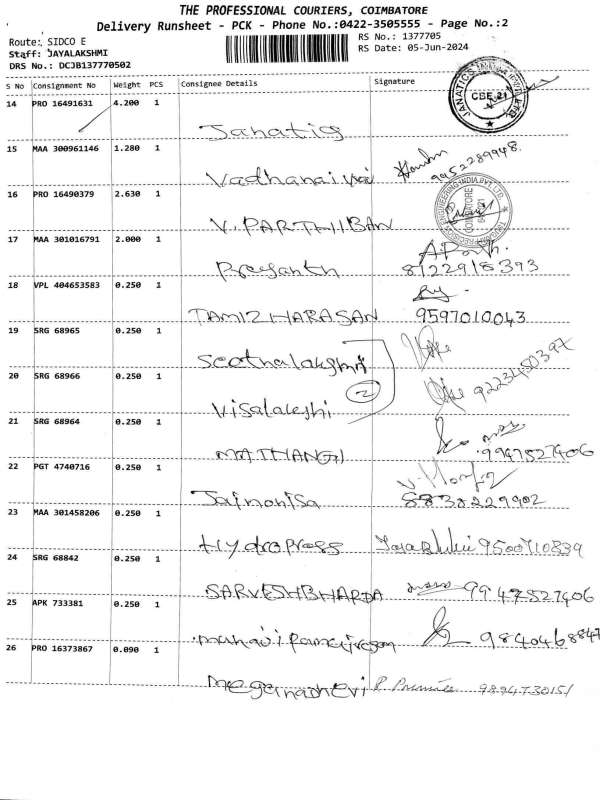 THE PROFESSIONAL COURIERS, COIMBATORE
Delivery Runsheet - PCK - Phone No.:0422-3505555 - Page No.:2
Route: SIDCO E
RS No.: 1377705
Staff: JAYALAKSHMI
RS Date: 05-Jun-2024
DRS No.: DCJB137770502
S No Consignment No Weight PCS Consignee Details Signature
14 PRO 16491631 4.200 1
CBE-21
Janatics
15 MAA 300961146 1.280 1
9952289948
16 PRO 16490379 2.630 1
COIMBATORE
V. PARTHIBAN
17 MAA 301016791 2.000 1
8122918393
18 VPL 404653583 0.250 1
TAMIZHARASAN 9597010043
19 SRG 68965 0.250 1
20 SRG 68966 0.250 1
2
9223450397
Visalakshi
21 SRG 68964 0.250 1
MATHANGI 9947527406
22 PGT 4740716 0.250 1
8838229902
23 MAA 301458206 0.250 1
Hydropress 9500710839
24 SRG 68842 0.250 1
SARVESHBHARDA 9947527406
25 APK 733381 0.250 1
9840468847
26 PRO 16373867 0.090 1
9894730151